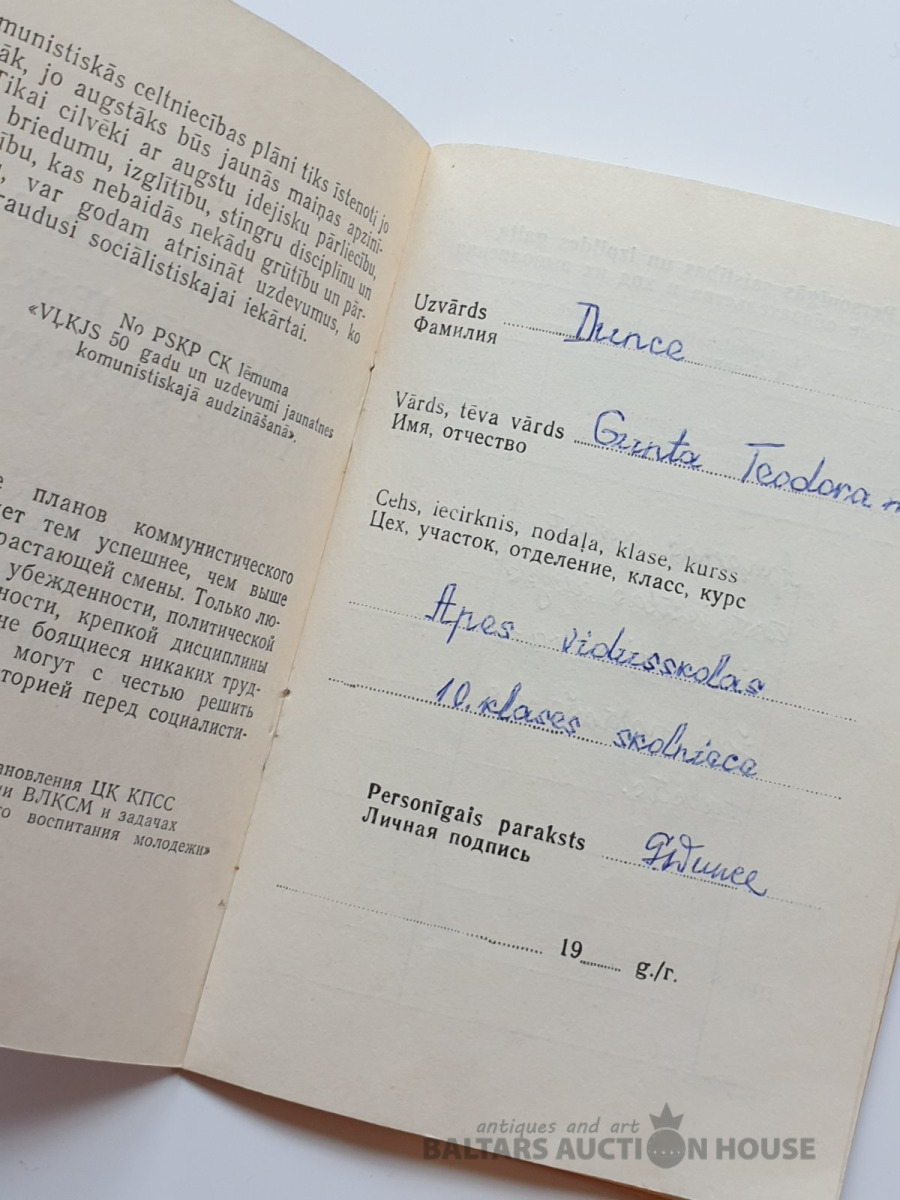 munistiskās celtniecības plāni tiks īstenoti jo
āk, jo augstāks būs jaunās maiņas apzini-
Tikai cilvēki ar augstu idejisku pārliecību,
briedumu, izglītību, stingru disciplīnu un
ību, kas nebaidās nekādu grūtību un pār-
, var godam atrisināt uzdevumus, ko
raudusi sociālistiskajai iekārtai.
No PSKP CK lēmuma
«VĻKJS 50 gadu un uzdevumi jaunatnes
komunistiskajā audzināšanā».
е планов коммунистического
ет тем успешнее, чем выше
растающей смены. Только лю-
убежденности, политической
ности, крепкой дисциплины
не боящиеся никаких труд-
могут с честью решить
торией перед социалисти-
ановления ЦК КПСС
и ВЛКСМ и задачах
го воспитания молодежи»
Uzvārds Dunce
Фамилия
Vārds, tēva vārds Gunta Teodora m
Имя, отчество
Cehs, iecirknis, nodaļa, klase, kurss
Цех, участок, отделение, класс, курс
Apes vidusskolas
10. klases skolniece
Personīgais paraksts GDunce
Личная подпись
19 g./г.
antiques and art
BALTARS AUCTION HOUSE